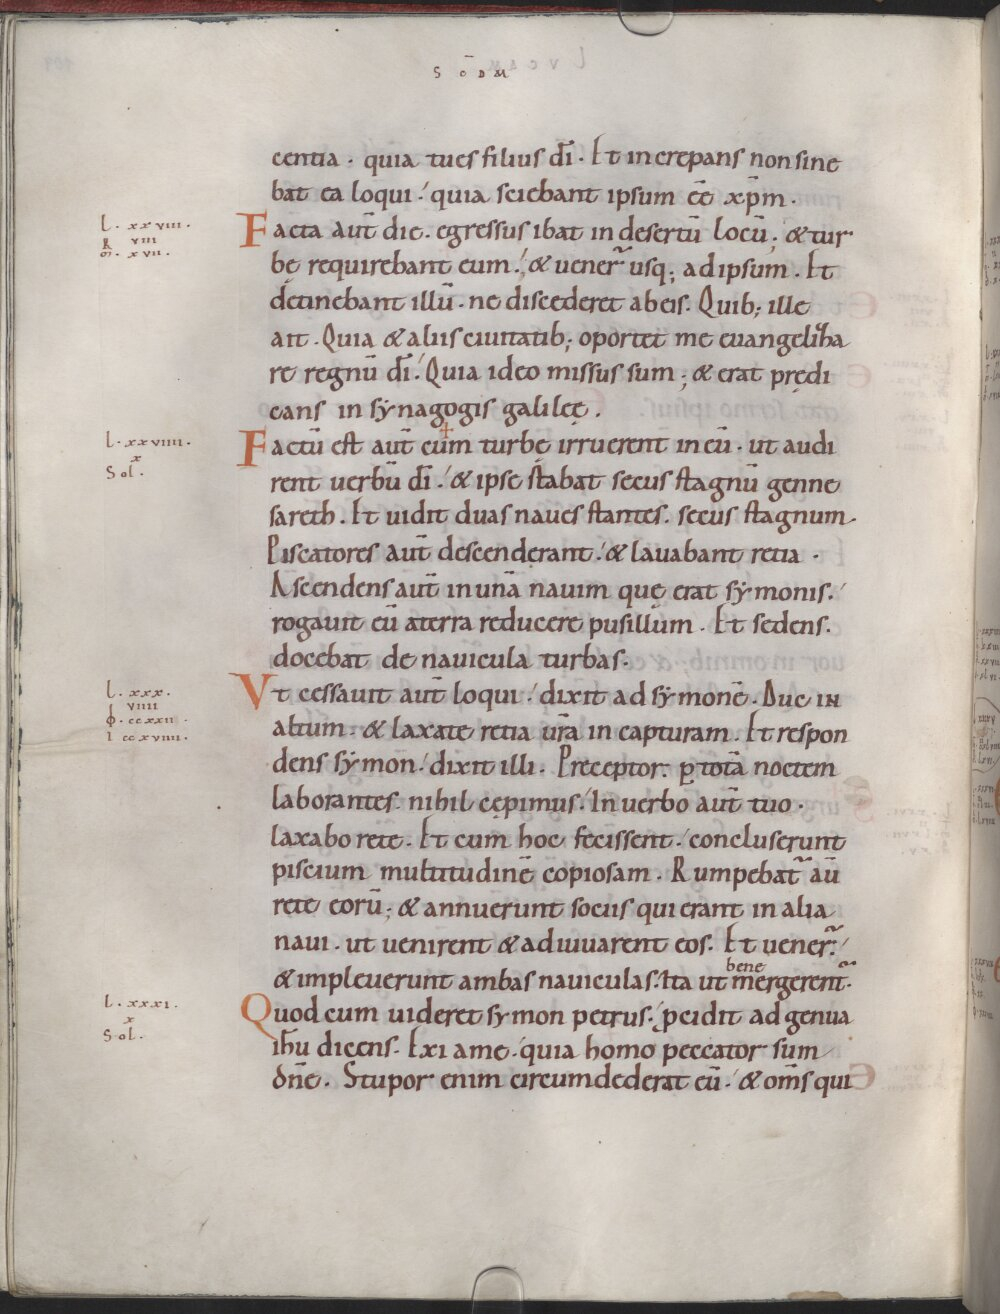 S C̄D M
centia · quia tu es filius dī · Et increpans non sine
bat ea loqui · quia sciebant ipsum eē xp̄m ·
l · xxviii ·
R viii
m · xvii ·
Facta aut̄ die · egressus ibat in desertū locū ; & tur
bę requirebant eum · & uener̄ usq; ad ipsum · Et
detinebant illū · ne discederet ab eis · Quib; ille
ait · Quia & aliis ciuitatib; oportet me euangeliza
re regnū dī · Quia ideo missus sum ; & erat prędi
cans in synagogis galileę ·
l · xxviiii ·
x
Sol ·
Factū est aut̄ cum turbę irruerent in eū · ut audi
rent uerbū dī · & ipse stabat secus stagnū genne
sareth · Et uidit duas naues stantes · secus stagnum ·
Piscatores aut̄ descenderant · & lauabant retia ·
Ascendens aut̄ in unā nauim quę erat symonis ·
rogauit eū a terra reducere pusillum · Et sedens ·
docebat de nauicula turbas ·
l · xxx ·
viiii
φ · ccxxii ·
i ccxviiii ·
Vt cessauit aut̄ loqui · dixit ad symonē · Duc in
altum · & laxate retia ur̄a in capturam · Et respon
dens symon · dixit illi · Preceptor · ꝑ totā noctem
laborantes nihil cępimus · In uerbo aut̄ tuo ·
laxabo rete · Et cum hoc fecissent · concluserunt
piscium multitudinē copiosam · Rumpebat̄ aū
rete eorū ; & annuerunt sociis qui erant in alia
naui · ut uenirent & adiuuarent eos · Et uener̄ ·
bene
& impleuerunt ambas nauiculas · Ita ut mergerent̄ ·
l · xxxi ·
x
Sol ·
Quod cum uideret symon petrus · p̄cidit ad genua
ihu dicens · Exi a me · quia homo peccator sum
dn̄e · Stupor enim circumdederat eū · & om̄s qui